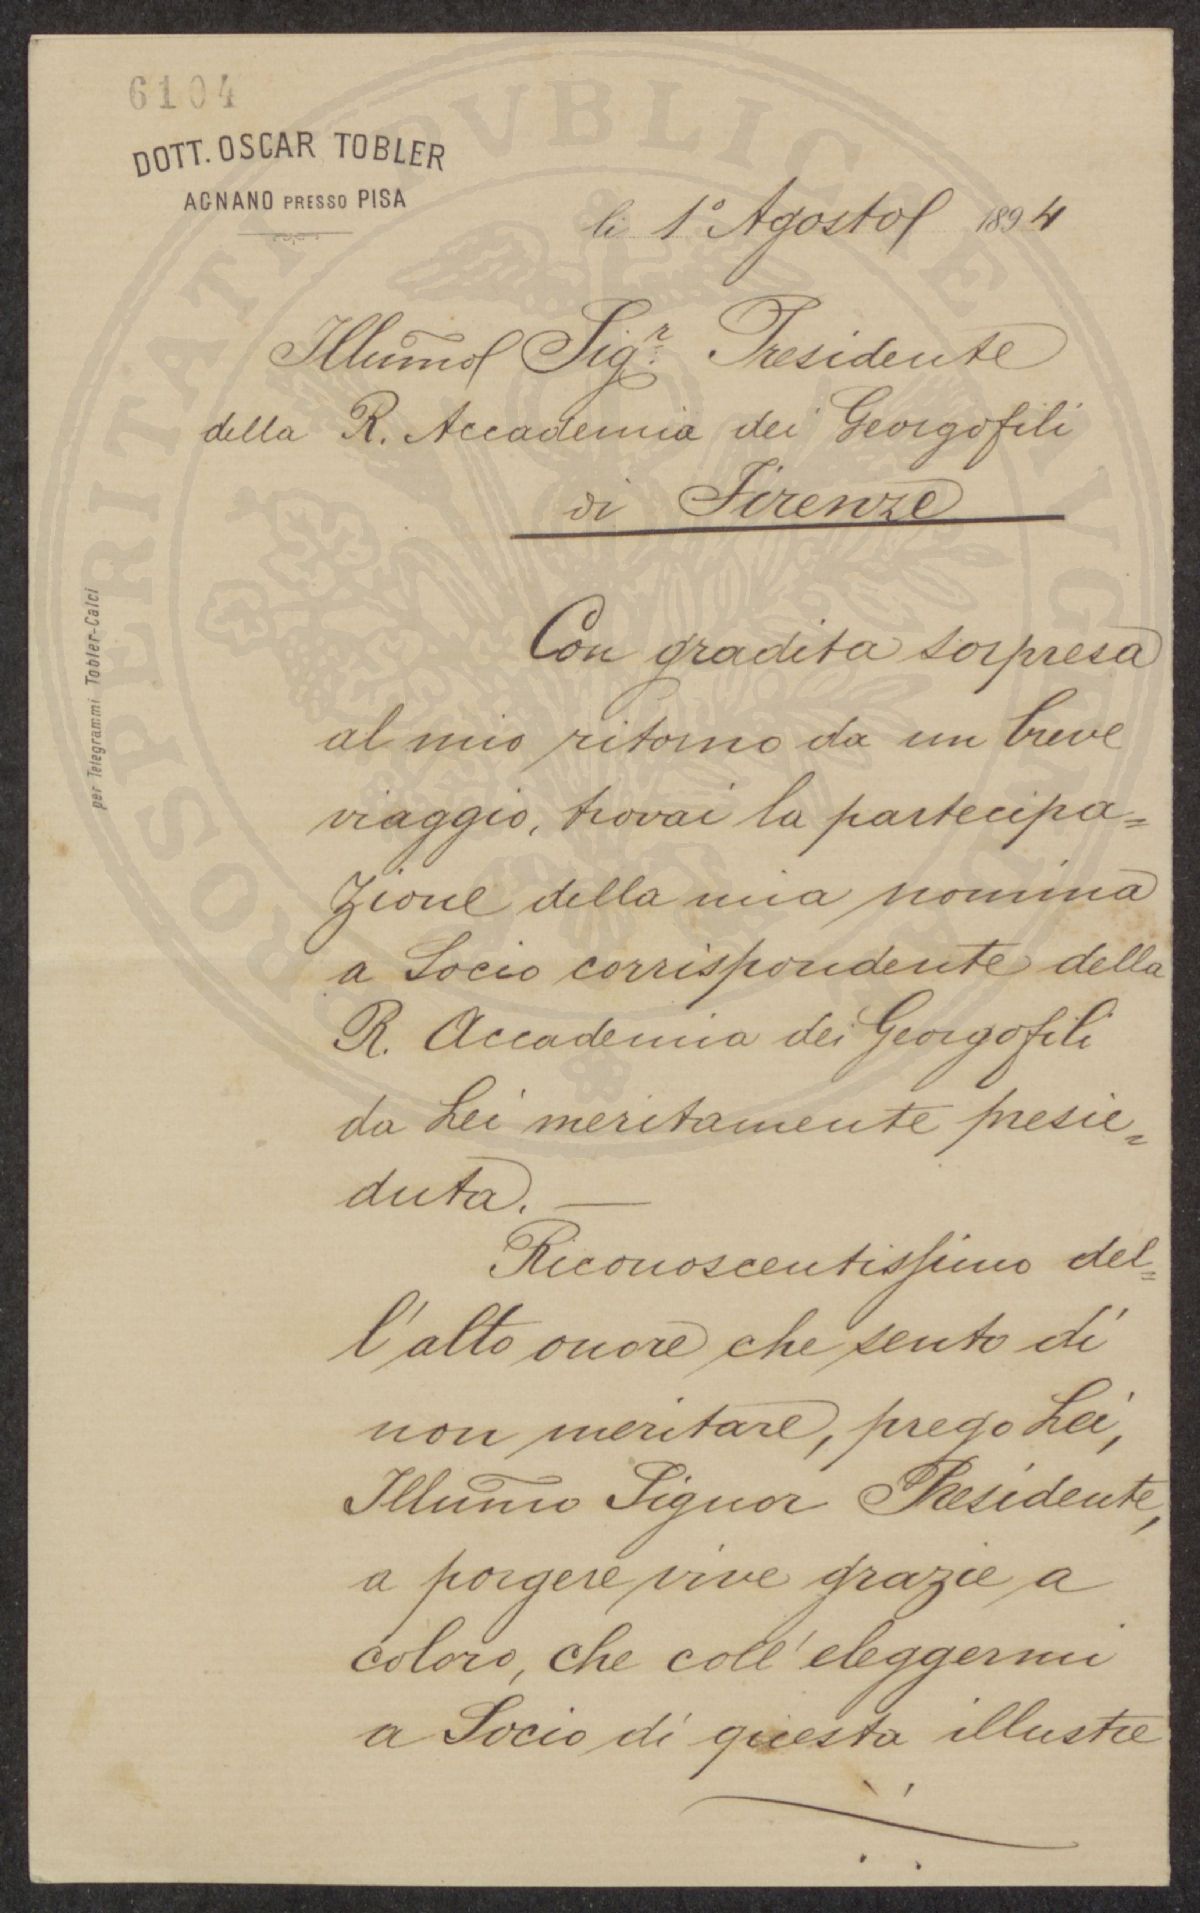 6104
DOTT. OSCAR TOBLER
AGNANO PRESSO PISA
li 1° Agosto 1894
Illumo Sigr. Presidente
della R. Accademia dei Georgofili
di Firenze
per Telegrammi Tobler-Calci
Con gradita sorpresa
al mio ritorno da un breve
viaggio, trovai la partecipa=
zione della mia nomina
a Socio corrispondente della
R. Accademia dei Georgofili
da Lei meritamente presie=
duta. —
Riconoscentissimo del=
l'alto onore che sento di
non meritare, prego Lei,
Illumo Signor Presidente,
a porgere vive grazie a
coloro, che coll'eleggermi
a Socio di questa illustre
PROSPERITATI PVBLICAE AVGENDAE